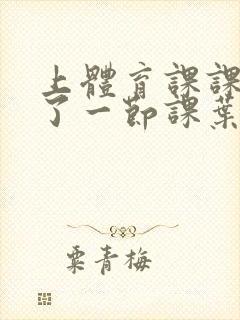 上體育課課
了一節課葉
粟青梅